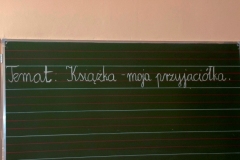 Temat: Książka - moja przyjaciółka.